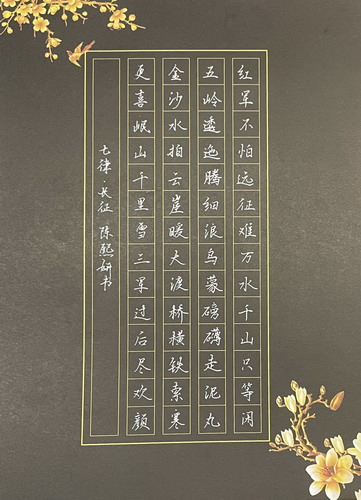 红军不怕远征难万水千山只等闲
五岭逶迤腾细浪乌蒙磅礴走泥丸
金沙水拍云崖暖大渡桥横铁索寒
更喜岷山千里雪三军过后尽欢颜
七律·长征 陈熙妍书